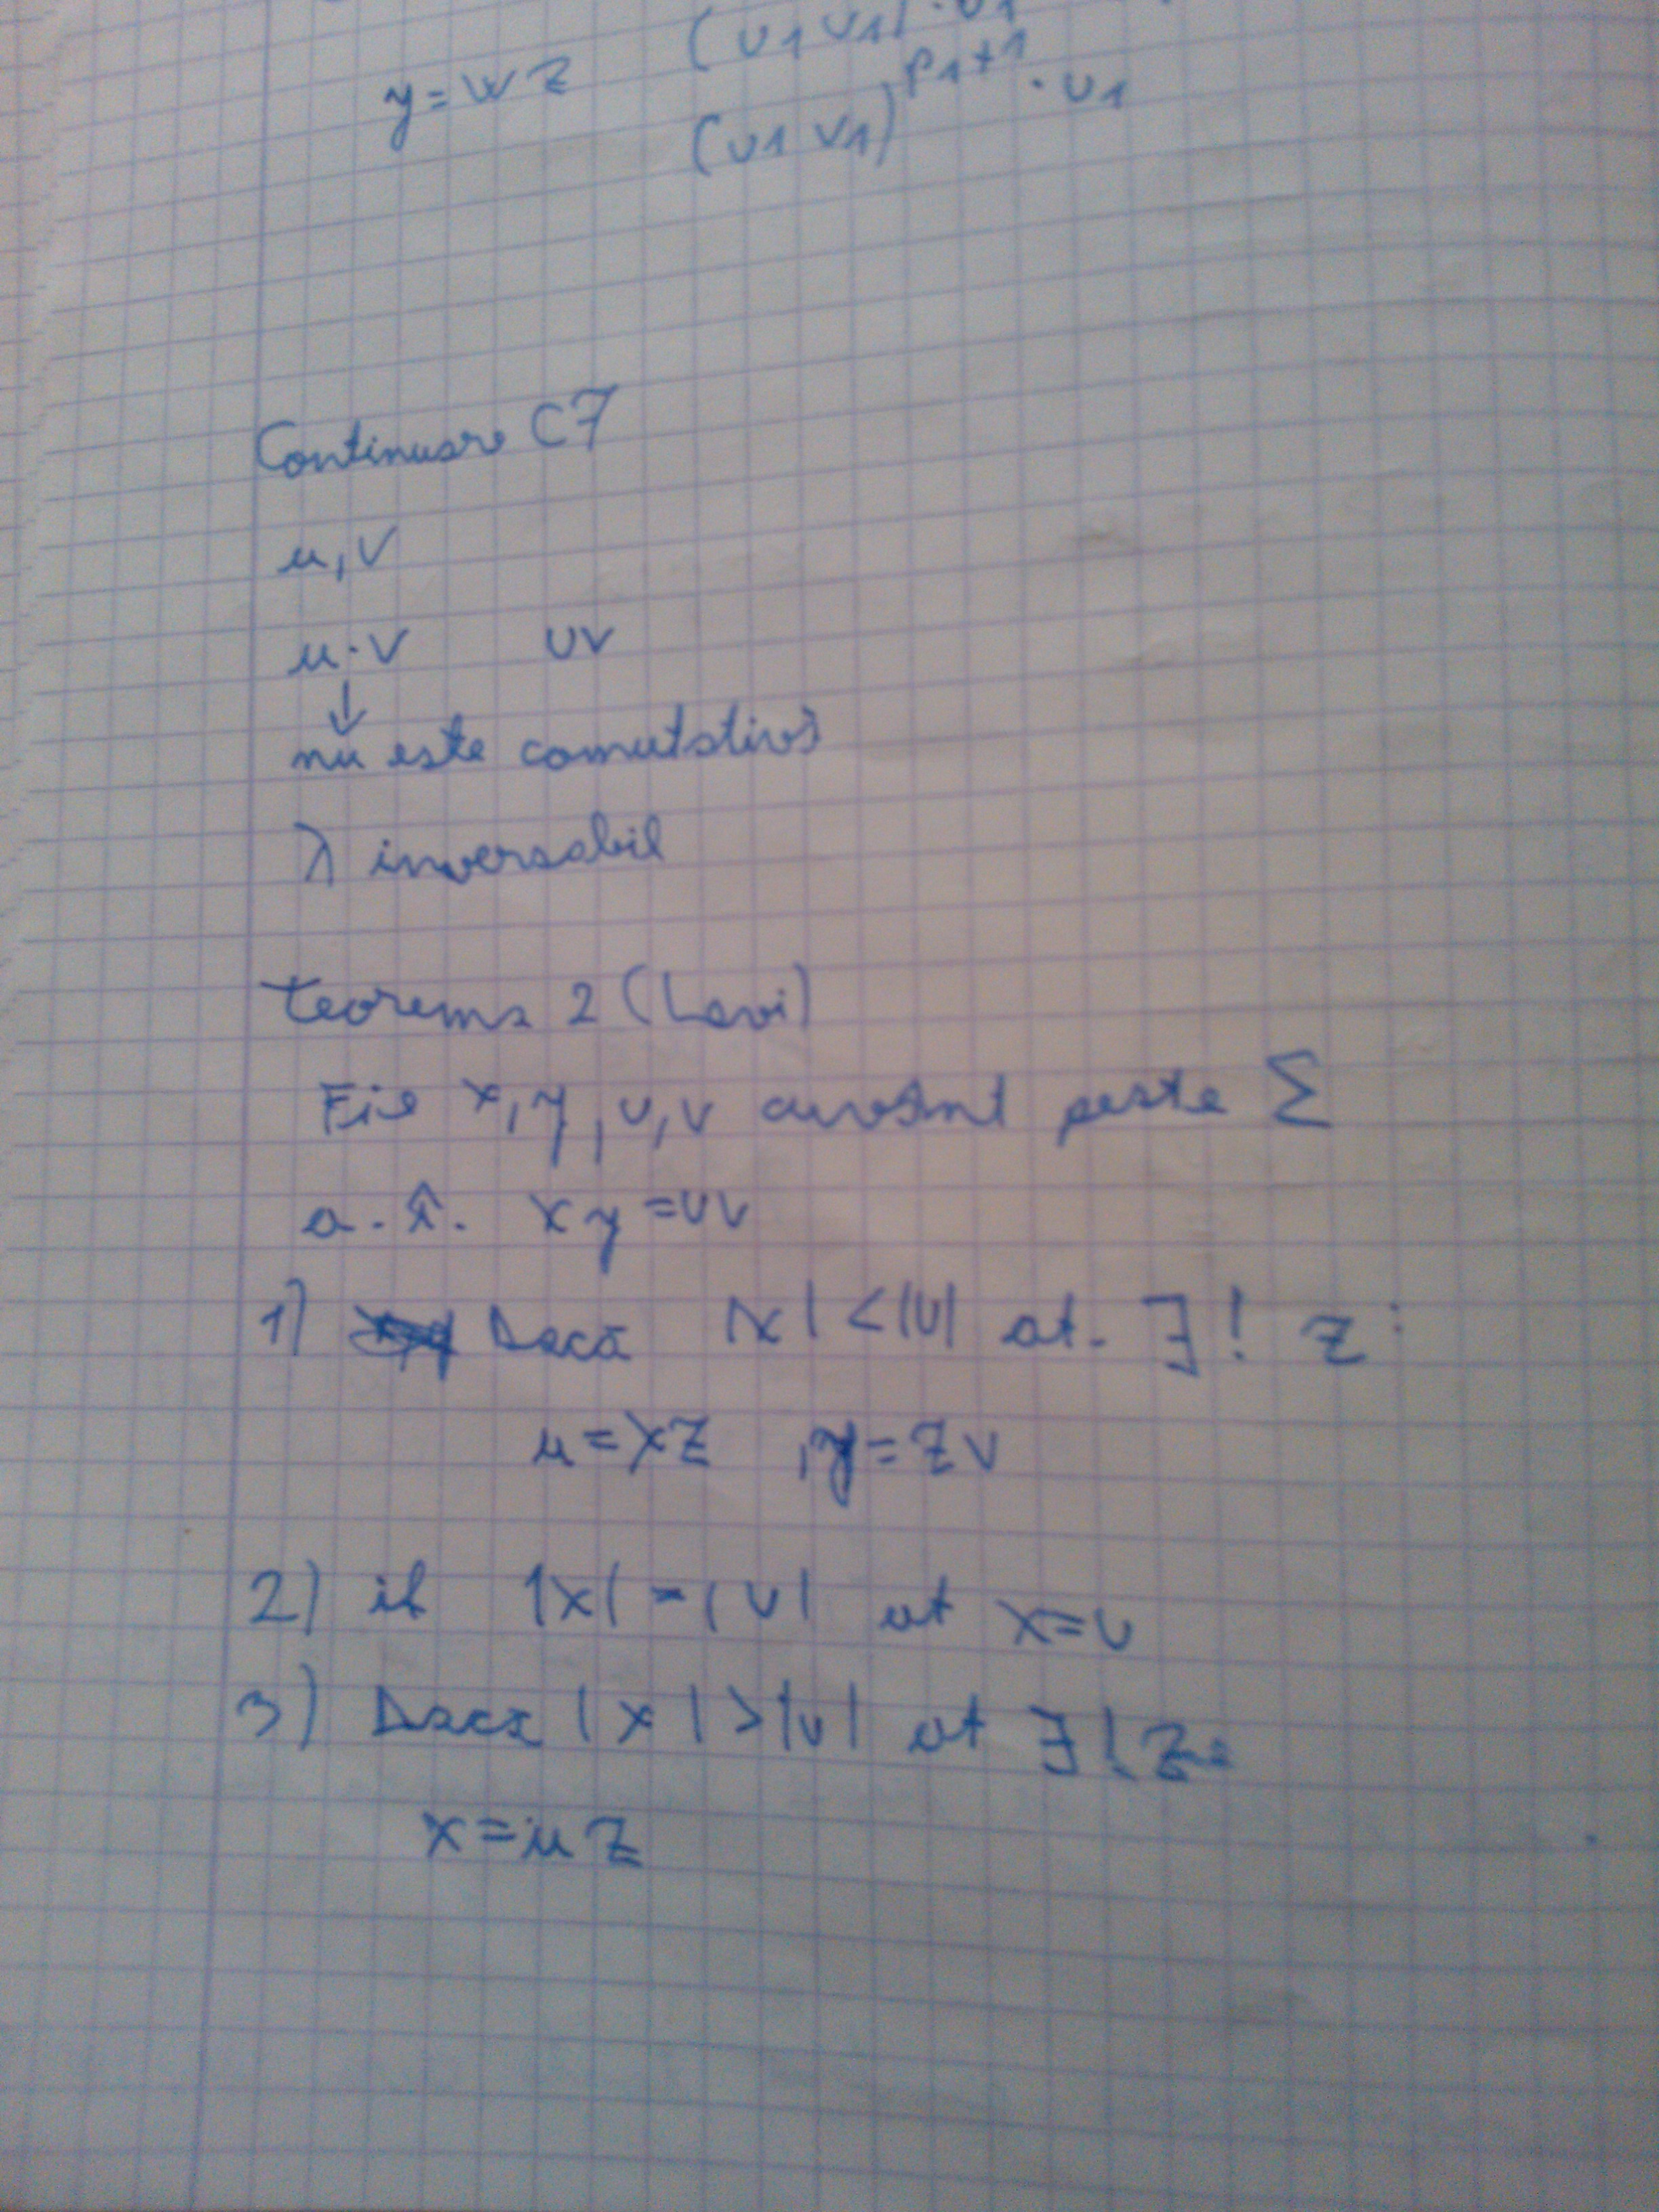 (u1v1) · u1
y=wz
(u1v1)^p1+1 · u1
Continuare C7
u,v
u·v uv
↓
nu este comutativă
λ inversabil
teorema 2 (Levi)
Fie x,y,u,v cuvânt peste Σ
a.î. xy=uv
1) Dacă |x|<|u| at. ∃! z:
u=xz ,y=zv
2) if |x|=|u| at x=u
3) Daca |x|>|u| at ∃!z:
x=uz